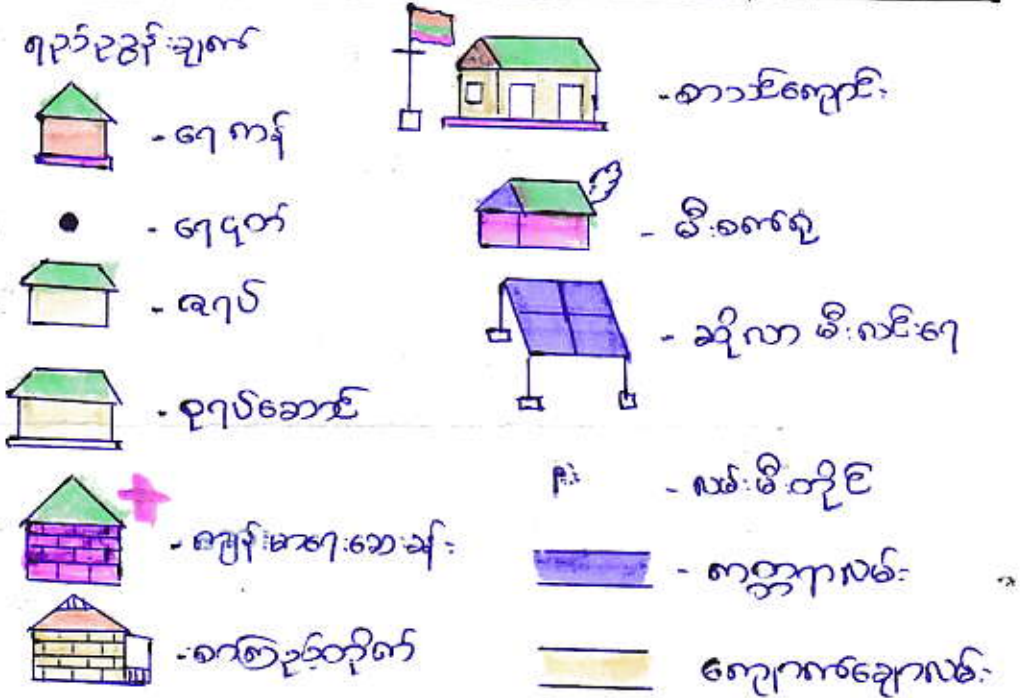 ရည်ညွှန်းချက်
- ရေကန်
- ရေတွက်
- ဇရပ်
- စုရပ်ဆောင်
- ကျန်းမာရေးဆေးခန်း
- စာကြည့်တိုက်
- စာသင်ကျောင်း
- မီးစက်ရုံ
- ဆိုလာ မီးလင်းရေ
- လမ်းမီးတိုင်
- ကတ္တရာလမ်း
ကျောက်ချောလမ်း